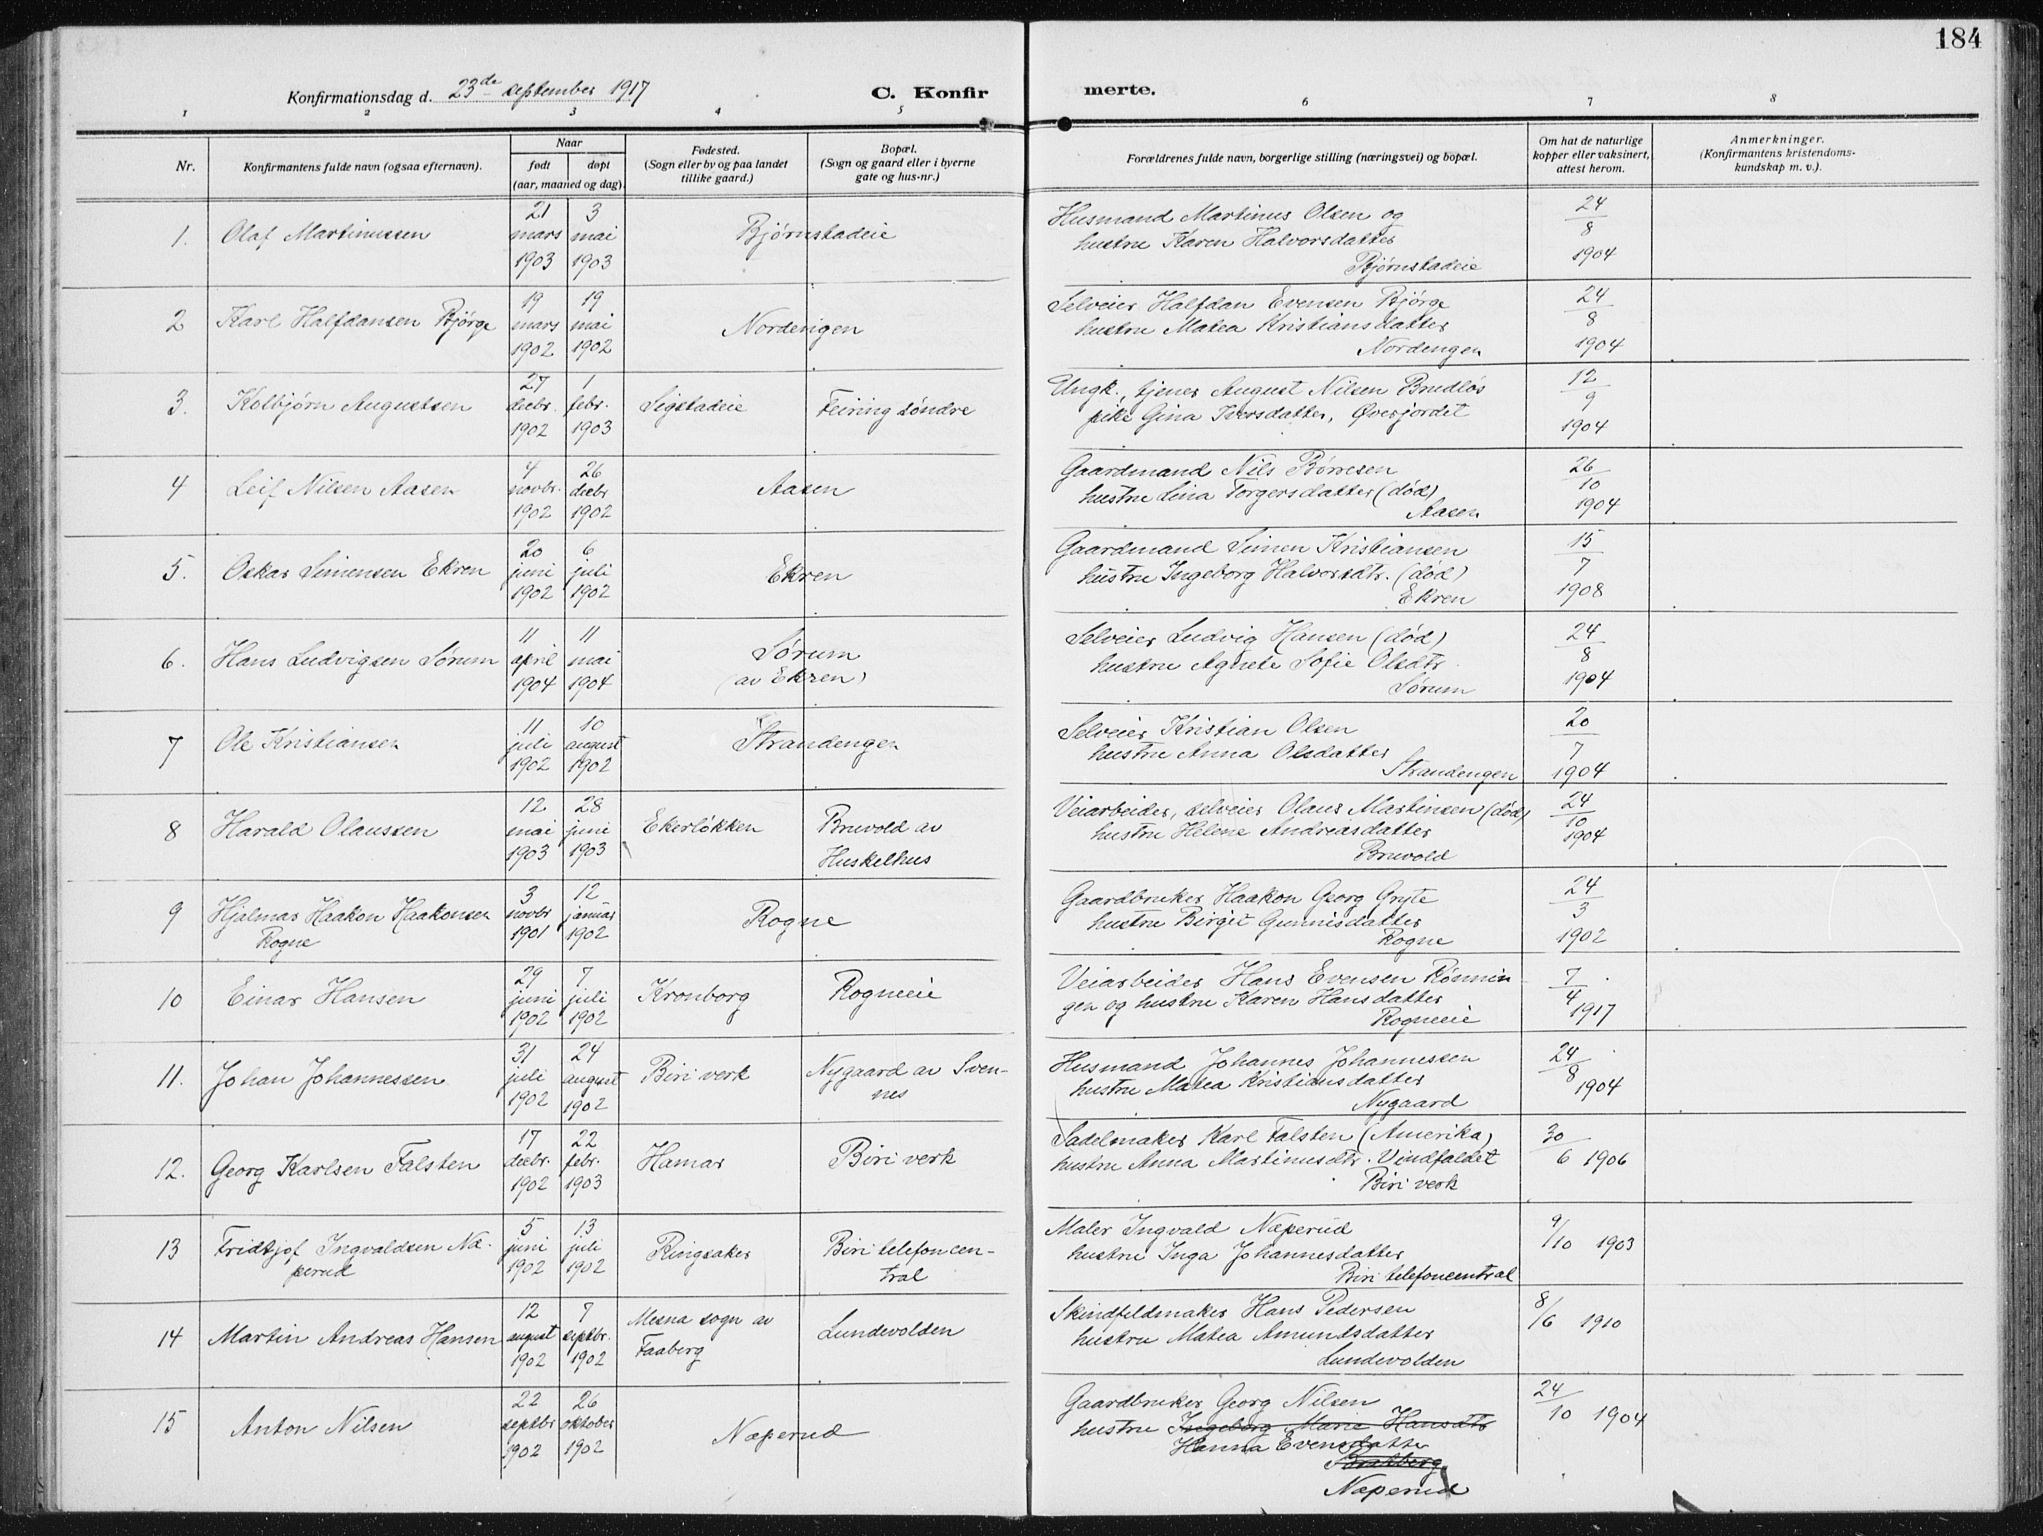 184
Konfirmationsdag d. 23de september 1917
C. Konfir
merte.
1 2 3 4 5 6 7 8
Nr.
Konfirmantens fulde navn (ogsaa efternavn).
Naar
født
døpt
(aar, maaned og dag).
Fødested.
(Sogn eller by og paa landet
tillike gaard.)
Bopæl.
(Sogn og gaard eller i byerne
gate og hus-nr.)
Forældrenes fulde navn, borgerlige stilling (næringsvei) og bopæl.
Om hat de naturlige
kopper eller vaksinert,
attest herom.
Anmerkninger.
(Konfirmantens kristendoms-
kundskap m. v.).
1. Olaf Martinussen
21 mars 1903
3 mai 1903
Bjørnstadeie
Husmand Martinus Olsen og
hustru Karen Halvorsdatter
Bjørnstadeie
24/8 1904
2 Karl Halfdansen Bjørge
19 mars 1902
19 mai 1902
Nordengen
Selveier Halfdan Evensen Bjørge
hustru Matea Kristiansdatter
Nordengen
24/8 1904
3. Kolbjørn Augustsen
27 decbr. 1902
1 febr. 1903
Sigstadeie
Feiring søndre
Ungk., tjener August Nilsen Brudløs
pike Gina Iversdatter, Øverjordet
12/9 1904
4 Leif Nilsen Aasen
4 novbr. 1902
26 decbr 1902
Aasen
Gaardmand Nils Børresen
hustru Lina Torgersdatter (død)
Aasen
26/10 1904
5. Oskar Simensen Ekren
20 juni 1902
6 juli 1902
Ekren
Gaardmand Simen Kristiansen
hustru Ingeborg Halvorsdtr. (død)
Ekren
15/7 1908
6. Hans Ludvigsen Sørum
11 april 1904
11 mai 1904
Sørum
(av Ekren)
Selveier Ludvig Hansen (død)
hustru Agnete Sofie Olsdtr.
Sørum
24/8 1904
7 Ole Kristiansen
11 juli 1902
10 august 1902
Strandengen
Selveier Kristian Olsen
hustru Anna Olsdatter
Strandengen
20/7 1904
8 Harald Olaussen
12 mai 1903
28 juni 1903
Ekerløkken
Bruvold av
Huskelhus
Veiarbeider, selveier Olaus Martinsen (død)
hustru Helene Andreasdatter
Bruvold
24/10 1904
9 Hjalmar Haakon Haakonsen
Rogne
3 novbr 1901
12 januar 1902
Rogne
Gaardbruker Haakon Georg Gryte
hustru Birgit Gunnisdatter
Rogne
24/3 1902
10 Einar Hansen
29 juni 1902
7 juli 1902
Kronborg
Rogneeie
Veiarbeider Hans Evensen Rønnin
gen og hustru Karen Hansdatter
Rogneeie
7/4 1917
11. Johan Johannessen
31 juli 1902
24 august 1902
Biri verk
Nygaard av Sven-
nes
Husmand Johannes Johannessen
hustru Matea Kristiansdatter
Nygaard
24/8 1904
12. Georg Karlsen Falsten
17 decbr. 1902
22 febr. 1903
Hamar
Biri verk
Sadelmaker Karl Falsten (Amerika)
hustru Anna Martinusdtr. Vindfaldet
Biri verk
30/6 1906
13 Fridtjof Ingvaldsen Næ-
perud
5 juni 1902
13 juli 1902
Ringsaker
Biri telefoncen-
tral
Maler Ingvald Næperud
hustru Inga Johannesdatter
Biri telefoncentral
9/10 1903
14 Martin Andreas Hansen
12 august 1902
7 septbr. 1902
Mesna sogn av
Faaberg
Lundevolden
Skindfeldmaker Hans Pedersen
hustru Matea Amundsdatter
Lundevolden
8/6 1910
15 Anton Nilsen
22 septbr 1902
26 oktober 1902
Næperud
Gaardbruker Georg Nilsen
hustru Ingeborg Marie Hansdtr
Hanna Evensdatter
Næperud
24/10 1904